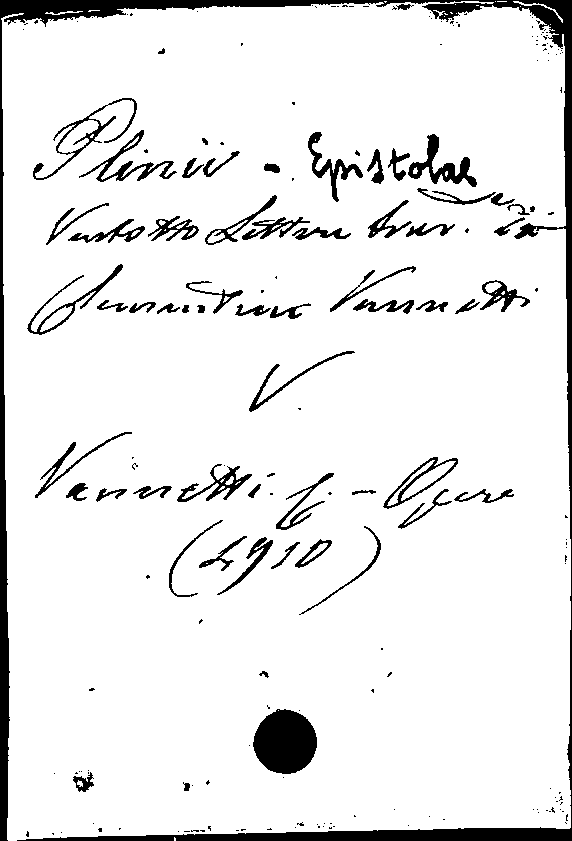 Plinii - Epistolae
Ventotto Lettere trar. da
Clementino Vannetti
V.
Vannetti. C. - Opere
(L910)